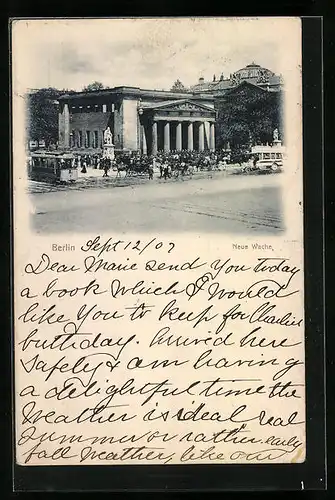 Berlin Sept 12/07 Neue Wache.
Dear Marie send You today
a book which I would
like You to keep for Charlies
birthday. Arrived here
safely & am having
a delightful time the
Weather is ideal real
summer or rather early
fall weather, like our